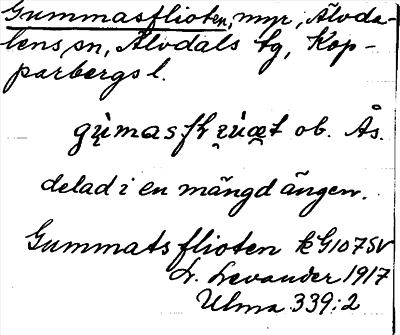 Gummasflioten, myr, Älvda-
lens sn, Älvdals tg, Kop-
parbergs l.
ob. Ås.
delad i en mängd ängen.
Gummatsflioten kG107SV
L. Levander 1917
Ulma 339:2